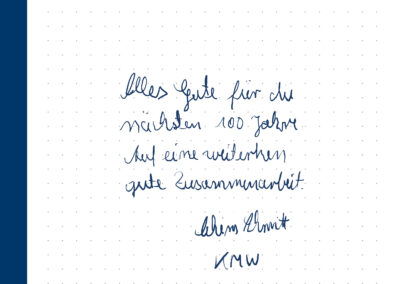 Alles Gute für die
nächsten 100 Jahre
Auf eine weiterhin
gute Zusammenarbeit.
KMW